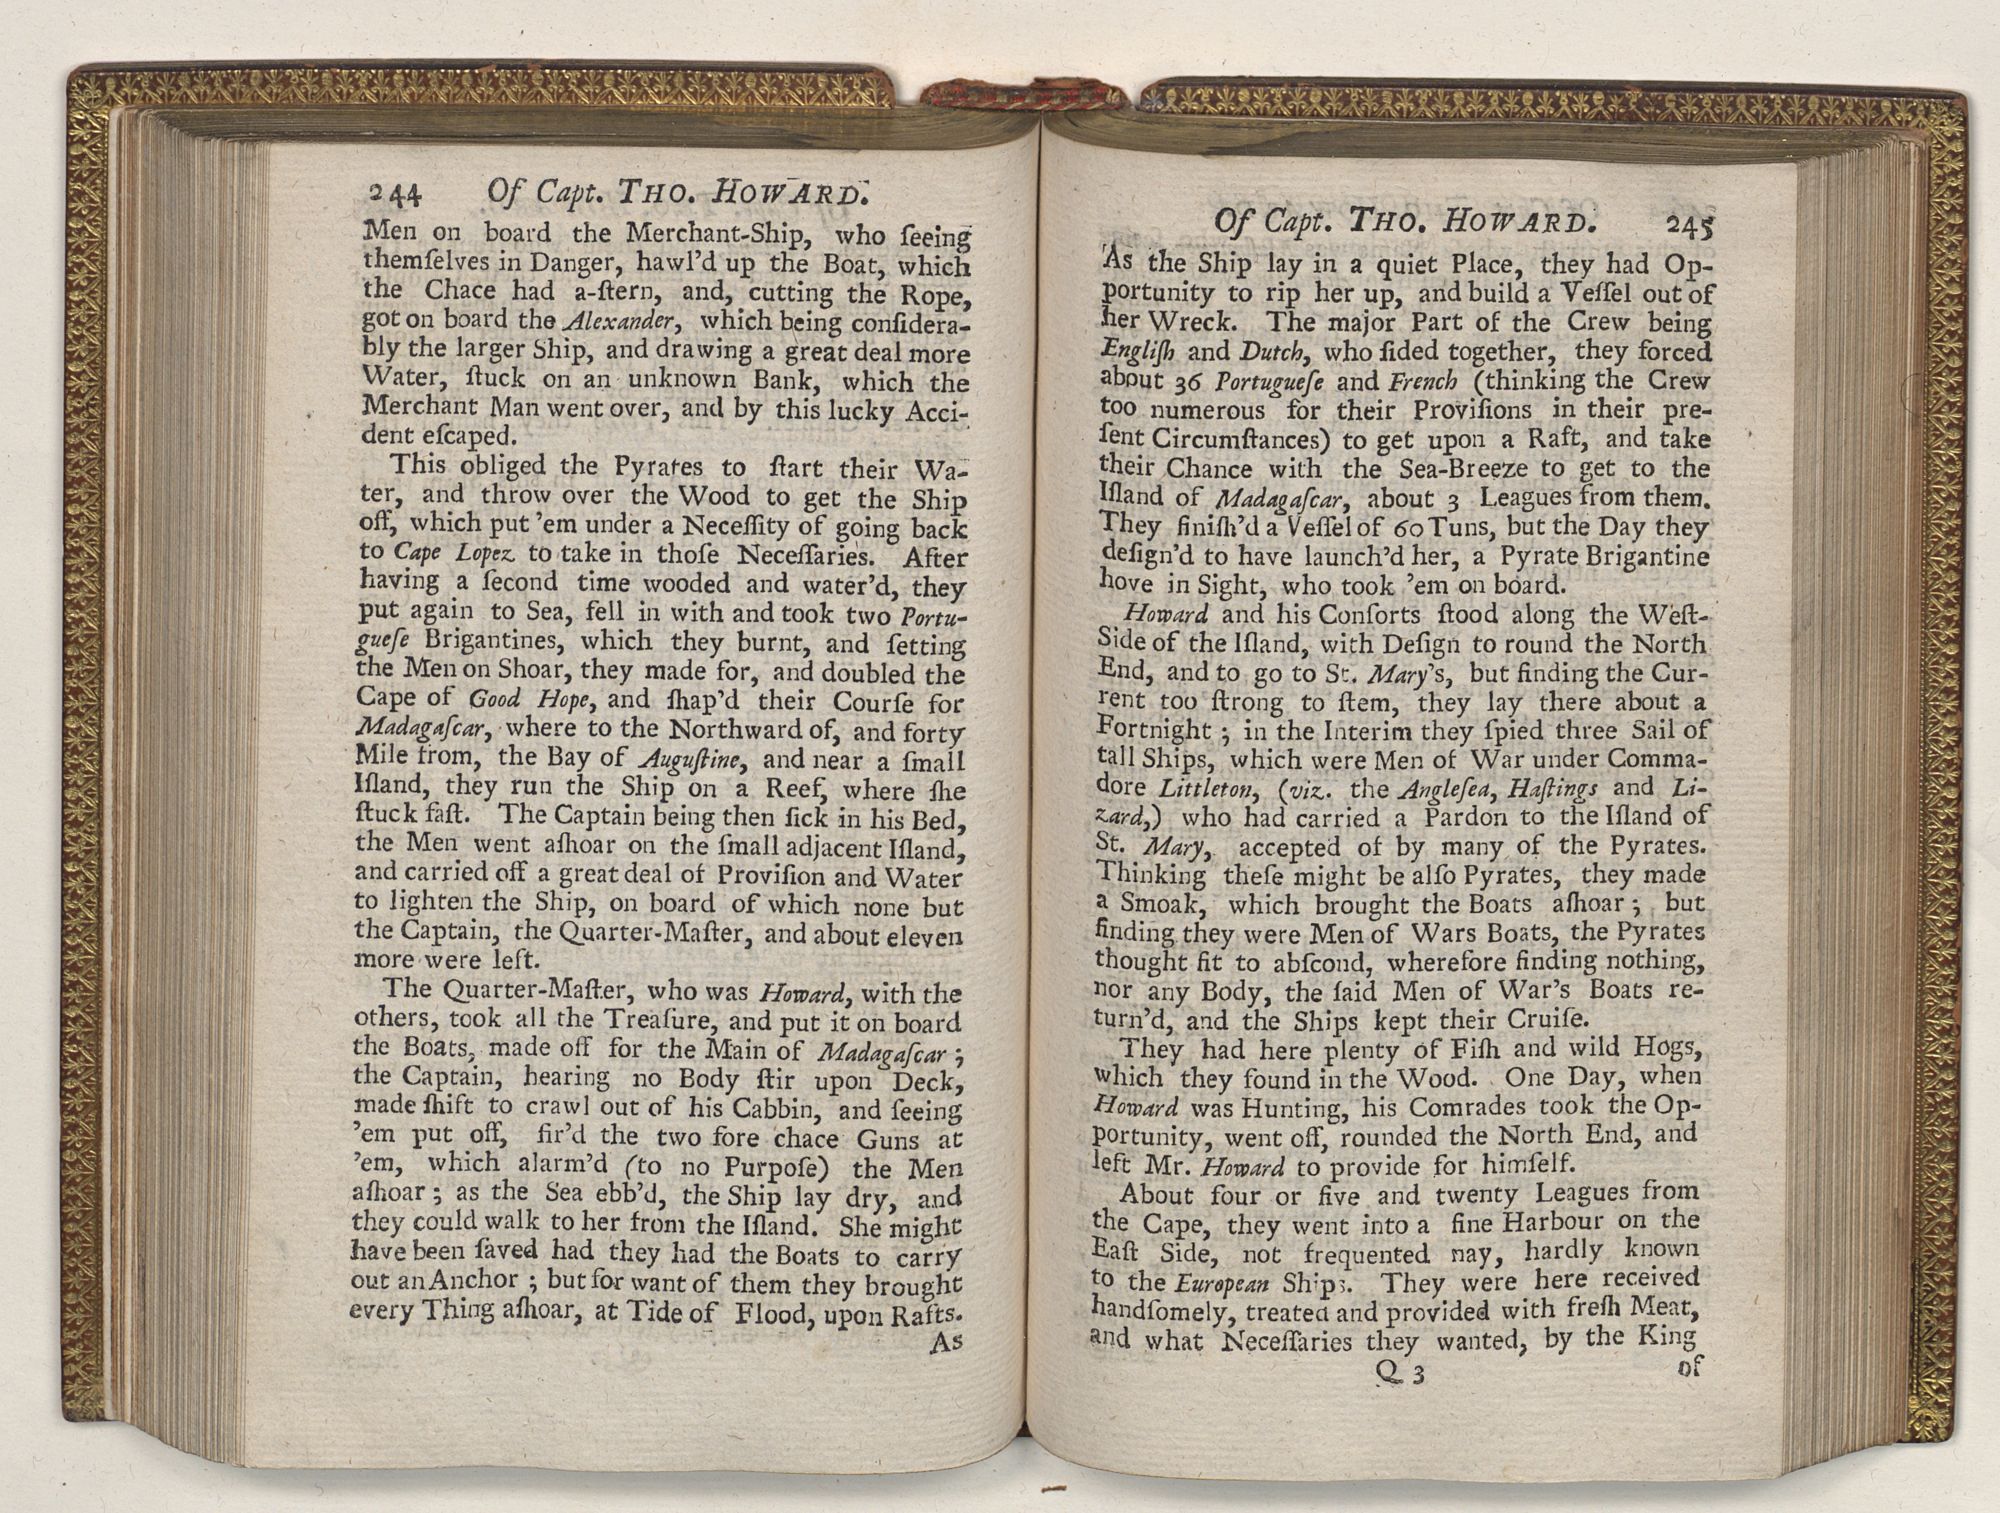 244 Of Capt. THO. HOWARD.
Men on board the Merchant-Ship, who ſeeing
themſelves in Danger, hawl’d up the Boat, which
the Chace had a-ſtern, and, cutting the Rope,
got on board the Alexander, which being conſidera-
bly the larger Ship, and drawing a great deal more
Water, ſtuck on an unknown Bank, which the
Merchant Man went over, and by this lucky Acci-
dent eſcaped.
This obliged the Pyrates to ſtart their Wa-
ter, and throw over the Wood to get the Ship
off, which put ’em under a Neceſſity of going back
to Cape Lopez to take in thoſe Neceſſaries. After
having a ſecond time wooded and water’d, they
put again to Sea, fell in with and took two Portu-
gueſe Brigantines, which they burnt, and ſetting
the Men on Shoar, they made for, and doubled the
Cape of Good Hope, and ſhap’d their Courſe for
Madagaſcar, where to the Northward of, and forty
Mile from, the Bay of Auguſtine, and near a ſmall
Iſland, they run the Ship on a Reef, where ſhe
ſtuck faſt. The Captain being then ſick in his Bed,
the Men went aſhoar on the ſmall adjacent Iſland,
and carried off a great deal of Proviſion and Water
to lighten the Ship, on board of which none but
the Captain, the Quarter-Maſter, and about eleven
more were left.
The Quarter-Maſter, who was Howard, with the
others, took all the Treaſure, and put it on board
the Boats, made off for the Main of Madagaſcar;
the Captain, hearing no Body ſtir upon Deck,
made ſhift to crawl out of his Cabbin, and ſeeing
’em put off, fir’d the two fore chace Guns at
’em, which alarm’d (to no Purpoſe) the Men
aſhoar; as the Sea ebb’d, the Ship lay dry, and
they could walk to her from the Iſland. She might
have been ſaved had they had the Boats to carry
out an Anchor; but for want of them they brought
every Thing aſhoar, at Tide of Flood, upon Rafts.
As
Of Capt. THO. HOWARD. 245
As the Ship lay in a quiet Place, they had Op-
portunity to rip her up, and build a Veſſel out of
her Wreck. The major Part of the Crew being
Engliſh and Dutch, who ſided together, they forced
about 36 Portugueſe and French (thinking the Crew
too numerous for their Proviſions in their pre-
ſent Circumſtances) to get upon a Raft, and take
their Chance with the Sea-Breeze to get to the
Iſland of Madagaſcar, about 3 Leagues from them.
They finiſh’d a Veſſel of 60 Tuns, but the Day they
deſign’d to have launch’d her, a Pyrate Brigantine
hove in Sight, who took ’em on board.
Howard and his Conſorts ſtood along the Weſt-
Side of the Iſland, with Deſign to round the North
End, and to go to St. Mary’s, but finding the Cur-
rent too ſtrong to ſtem, they lay there about a
Fortnight; in the Interim they ſpied three Sail of
tall Ships, which were Men of War under Comma-
dore Littleton, (viz. the Angleſea, Haſtings and Li-
zard,) who had carried a Pardon to the Iſland of
St. Mary, accepted of by many of the Pyrates.
Thinking theſe might be alſo Pyrates, they made
a Smoak, which brought the Boats aſhoar; but
finding they were Men of Wars Boats, the Pyrates
thought fit to abſcond, wherefore finding nothing,
nor any Body, the ſaid Men of War’s Boats re-
turn’d, and the Ships kept their Cruiſe.
They had here plenty of Fiſh and wild Hogs,
which they found in the Wood. One Day, when
Howard was Hunting, his Comrades took the Op-
portunity, went off, rounded the North End, and
left Mr. Howard to provide for himſelf.
About four or five and twenty Leagues from
the Cape, they went into a fine Harbour on the
Eaſt Side, not frequented nay, hardly known
to the European Ships. They were here received
handſomely, treated and provided with freſh Meat,
and what Neceſſaries they wanted, by the King
Q 3 of